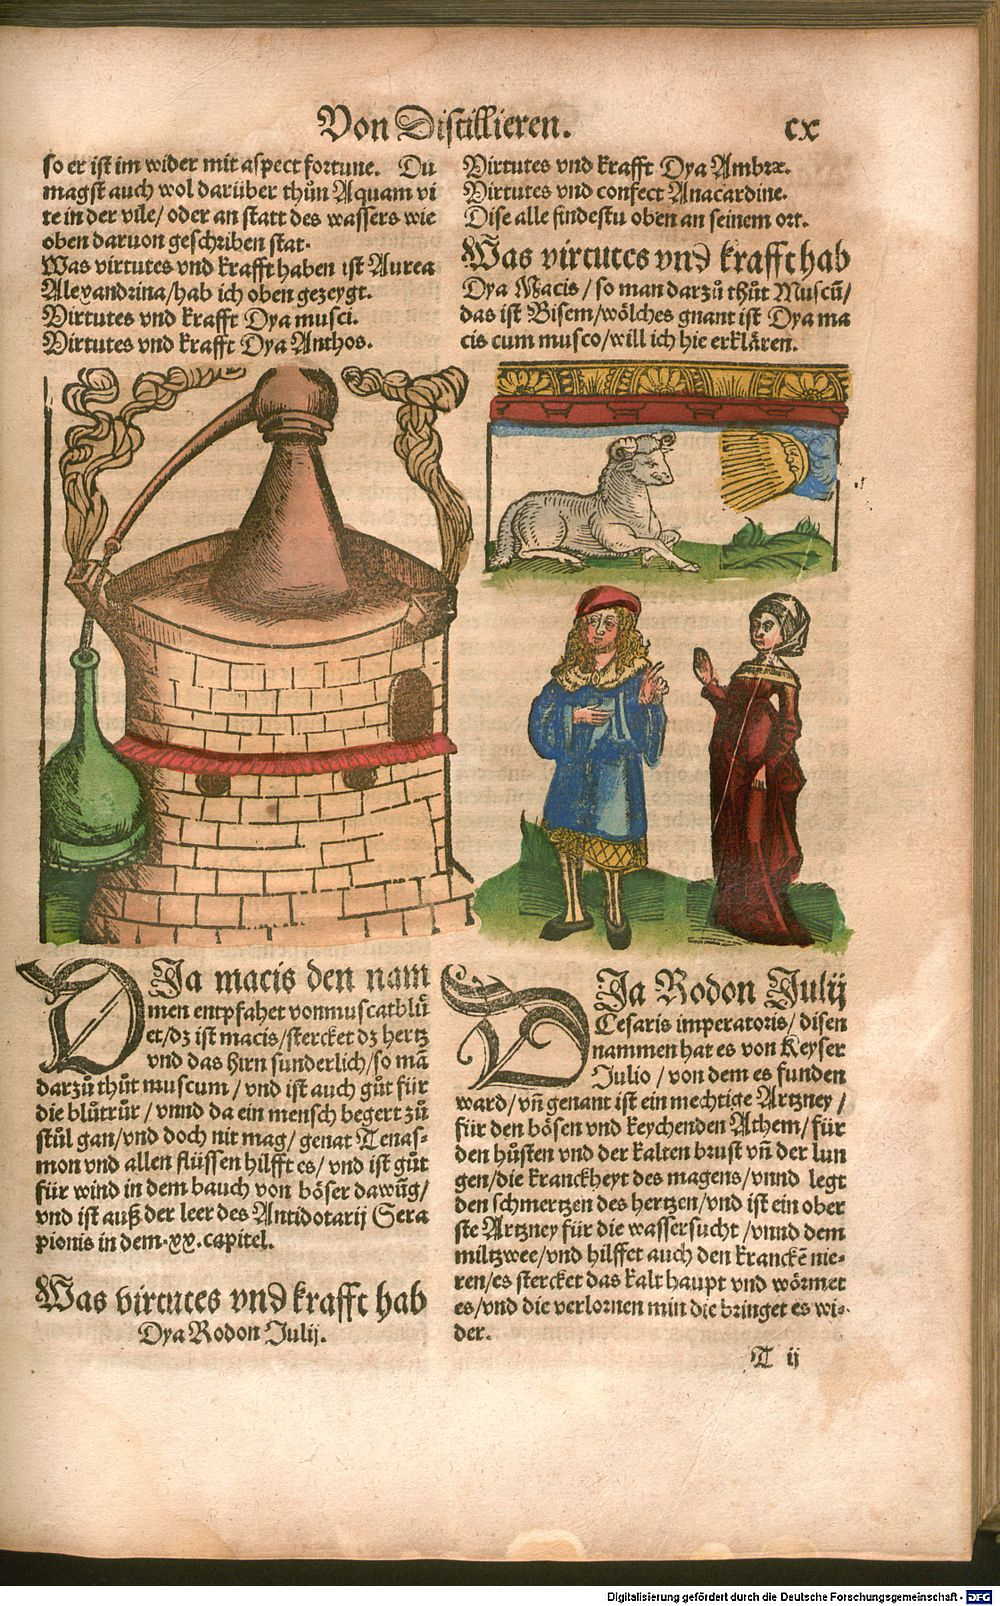 Von Distillieren.
cx
so er ist im wider mit aspect fortune. Du
magst auch wol darüber thůn Aquam vi
te in der vile/ oder an statt des wassers wie
oben daruon geschriben stat.
Was virtutes vnd krafft haben ist Aurea
Alexandrina/hab ich oben gezeygt.
Virtutes vnd krafft Dya musci.
Virtutes vnd krafft Dya Anthos.
Virtutes vnd krafft Dya Ambre.
Virtutes vnd confect Anacardine.
Dise alle findestu oben an seinem ort.
Was virtutes vnd krafft hab
Dya Macis/ so man darzů thůt Muscū/
das ist Bisem/wölches gnant ist Dya ma
cis cum musco/will ich hie erklären.
DJa macis den nam
men entpfahet vonmuscatblů
et/dz ist macis/stercket dz hertz
vnd das hirn sunderlich/so mā
darzů thůt muscum/ vnd ist auch gůt für
die blůtrůr/ vnnd da ein mensch begert zů
stůl gan/vnd doch nit mag/ genat Tenas-
mon vnd allen flüssen hilfft es/ vnd ist gůt
für wind in dem bauch von böser dawūg/
vnd ist auß der leer des Antidotarij Sera
pionis in dem .xx. capitel.
Was virtutes vnd krafft hab
Dya Rodon Julij.
DJa Rodon Julij
Cesaris imperatoris/ disen
nammen hat es von Keyser
Julio/ von dem es funden
ward/ vn̄ genant ist ein mechtige Artzney/
für den bösen vnd keychenden Athem/ für
den hůsten vnd der kalten brust vn̄ der lun
gen/die kranckheyt des magens/ vnnd legt
den schmertzen des hertzen/vnd ist ein ober
ste Artzney für die wassersucht/vnnd dem
miltzwee/vnd hilffet auch den kranckē nie-
ren/es stercket das kalt haupt vnd wörmet
es/vnd die verlornen min die bringet es wi-
der.
T ij
Digitalisierung gefördert durch die Deutsche Forschungsgemeinschaft - DFG